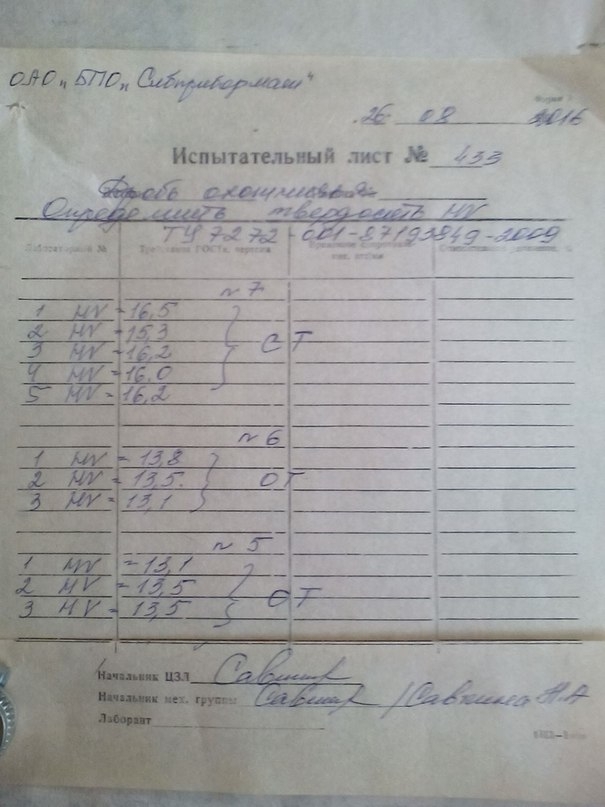 ОАО "БПО "Сибприбормаш"
26. 08 2016
Испытательный лист № 433
Дробь охотничья
Определить твердость HV
ТУ 7272-001-87193849-2009
Лабораторный №
Требования ГОСТа, чертежа
№ 7
1 HV = 16,5
2 HV = 15,3
3 HV = 16,2 СТ
4 HV = 16,0
5 HV = 16,2
№ 6
1 HV = 13,8
2 HV = 13,5 ОТ
3 HV = 13,1
№ 5
1 HV = 13,1
2 HV = 13,5
3 HV = 13,5 ОТ
Начальник ЦЗЛ
Начальник мех. группы
Лаборант